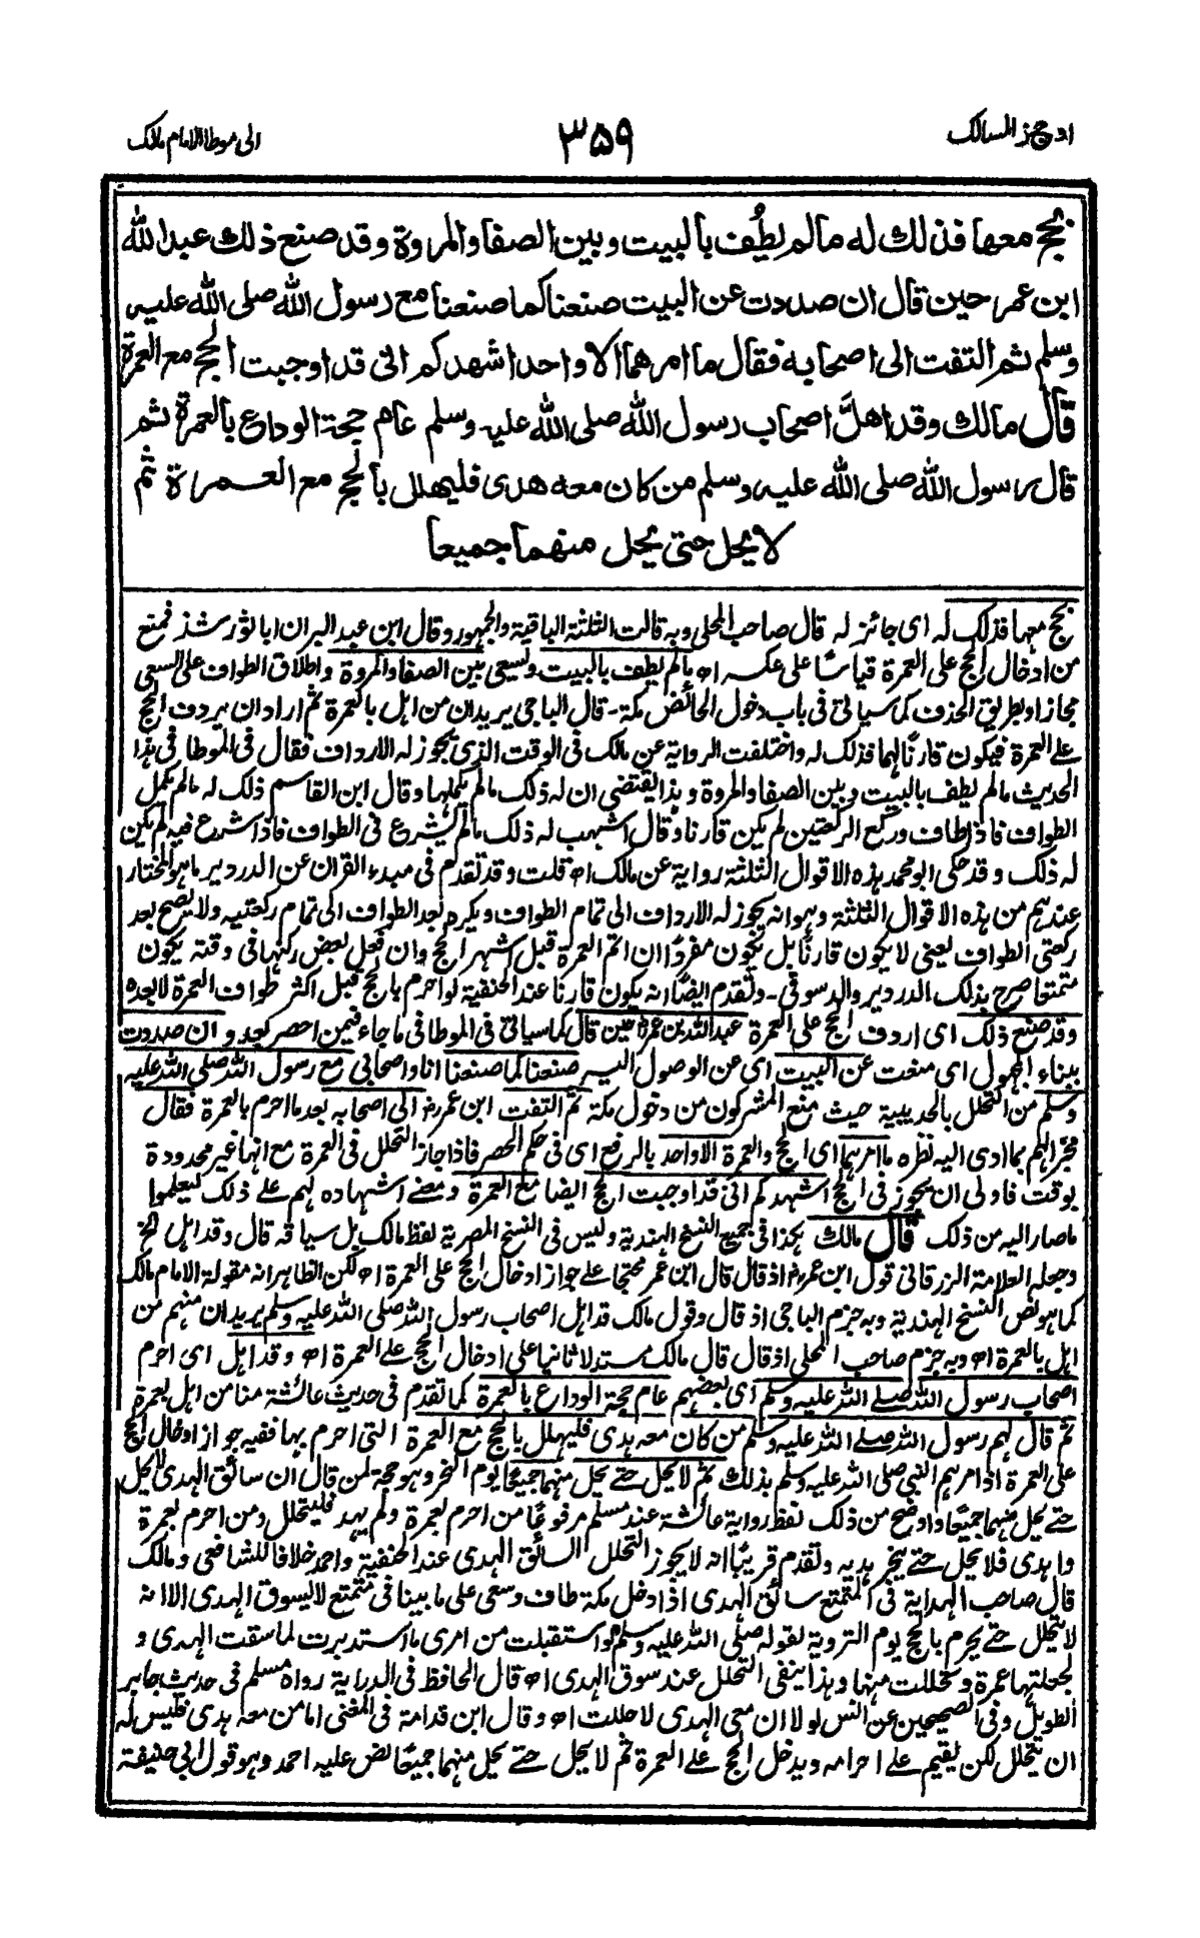 اوجز المسالك
٣٥٩
الى موطا الامام مالك
بحج معها فذلك له مالم يطُف بالبيت وبين الصفا والمروة وقد صنع ذلك عبد الله
ابن عمر حين قال ان صددت عن البيت صنعنا كما صنعنا مع رسول الله صلى الله عليه
وسلم ثم التفت الى اصحابه فقال ما امرهما الا واحد اشهدكم انى قد اوجبت الحج مع العمرة
قال مالك وقد اهلَّ اصحاب رسول الله صلى الله عليه وسلم عام حجة الوداع بالعمرة ثم
قال رسول الله صلى الله عليه وسلم من كان معه هدى فليهلل بالحج مع العمرة ثم
لا يحل حتى يحل منهما جميعا
بحج معها فذلك له اى جائز له قال صاحب المحلى وبه قالت الثلثة الباقية والجمهور وقال ابن عبد البر ان ابا ثور شذ فمنع
من ادخال الحج على العمرة قياسًا على عكسه اه مالم يطف بالبيت ويسعى بين الصفا والمروة واطلاق الطواف على السعى
مجازا وبطريق الحذف كما سياتى فى باب دخول الحائض مكة - قال الباجى يريد ان من اهل بالعمرة ثم اراد ان يردف الحج
على العمرة فيكون قارنًا لهما فذلك له واختلفت الرواية عن مالك فى الوقت الذى يجوز له الارداف فقال فى الموطا فى هذا
الحديث مالم يطف بالبيت وبين الصفا والمروة وهذا يقتضى ان له ذلك مالم يكملها وقال ابن القاسم ذلك له مالم يكمل
الطواف فاذا طاف وركع الركعتين لم يكن قارنا وقال اشهب له ذلك مالم يشرع فى الطواف فاذا شرع فيه لم يكن
له ذلك وقد حكى ابو محمد هذه الاقوال الثلثة رواية عن مالك اه قلت وقد تقدم فى مبدء القران عن الدردير ما هو المختار
عندهم من هذه الاقوال الثلثة وهو انه يجوز له الارداف الى تمام الطواف ويكره بعد الطواف الى تمام ركعتيه ولا يصح بعد
ركعتى الطواف يعنى لا يكون قارنًا بل يكون مفردًا ان اتم العمرة قبل اشهر الحج وان فعل بعض ركنها فى وقته يكون
متمتعا صرح بذلك الدردير والدسوقى - وتقدم ايضًا انه يكون قارنا عند الحنفية لو احرم بالحج قبل اكثر طواف العمرة لا بعده
وقد صنع ذلك اى اردف الحج على العمرة عبد الله بن عمر حين قال كما سياتى فى الموطا فى ما جاء فيمن احصر بعدو ان صددت
ببناء المجهول اى منعت عن البيت اى عن الوصول اليه صنعنا كما صنعنا انا واصحابى مع رسول الله صلى الله عليه
وسلم من التحلل بالحديبية حيث منع المشركون من دخول مكة ثم التفت ابن عمر الى اصحابه بعد ما احرم بالعمرة فقال
مخبرا لهم بما ادى اليه نظره ما امرهما اى الحج والعمرة الا واحد بالرفع اى فى حكم الحصر فاذا جاز التحلل فى العمرة مع انها غير محدودة
بوقت فاولى ان يجوز فى الحج اشهدكم انى قد اوجبت الحج ايضا مع العمرة ومعنى اشهاده لهم على ذلك ليعلموا
ما صار اليه من ذلك قال مالك هكذا فى جميع النسخ الهندية وليس فى النسخ المصرية لفظ مالك بل سياقه قال وقد اهل الخ
وجعله العلامة الزرقانى قول ابن عمر اذ قال قال ابن عمر محتجا على جواز ادخال الحج على العمرة اه لكن الظاهر انه مقولة الامام مالك
كما هو نص النسخ الهندية وبه جزم الباجى اذ قال وقول مالك قد اهل اصحاب رسول الله صلى الله عليه وسلم يريد ان منهم من
اهل بالعمرة اه وبه جزم صاحب المحلى اذ قال قال مالك مستدلا ثانيا على ادخال الحج على العمرة اه وقد اهل اى احرم
اصحاب رسول الله صلى الله عليه وسلم اى بعضهم عام حجة الوداع بالعمرة كما تقدم فى حديث عائشة منا من اهل بعمرة
ثم قال لهم رسول الله صلى الله عليه وسلم من كان معه هدى فليهلل بالحج مع العمرة التى احرم بها ففيه جواز ادخال الحج
على العمرة اذ امرهم النبى صلى الله عليه وسلم بذلك ثم لا يحل حتى يحل منهما جميعًا يوم النحر وهو حجة لمن قال ان سائق الهدى لا يحل
حتى يحل منهما جميعًا واوضح من ذلك لفظ رواية عائشة عند مسلم مرفوعًا من احرم بعمرة ولم يهد فليتحلل ومن احرم بعمرة
واهدى فلا يحل حتى ينحر هديه وتقدم قريبًا انه لا يجوز التحلل السائق الهدى عند الحنفية واحمد خلافا للشافعى ومالك
قال صاحب الهداية فى المتمتع سائق الهدى اذا دخل مكة طاف وسعى على ما بينا فى متمتع لا يسوق الهدى الا انه
لا يتحلل حتى يحرم بالحج يوم التروية لقوله صلى الله عليه وسلم لو استقبلت من امرى ما استدبرت لما سقت الهدى و
لجعلتها عمرة وتحللت منها وهذا ينفى التحلل عند سوق الهدى اه قال الحافظ فى الدراية رواه مسلم فى حديث جابر
الطويل وفى الصحيحين عن انس لولا ان معى الهدى لاحللت اه وقال ابن قدامة فى المغنى اما من معه هدى فليس له
ان يتحلل لكن يقيم على احرامه ويدخل الحج على العمرة ثم لا يحل حتى يحل منهما جميعًا نص عليه احمد وهو قول ابى حنيفة